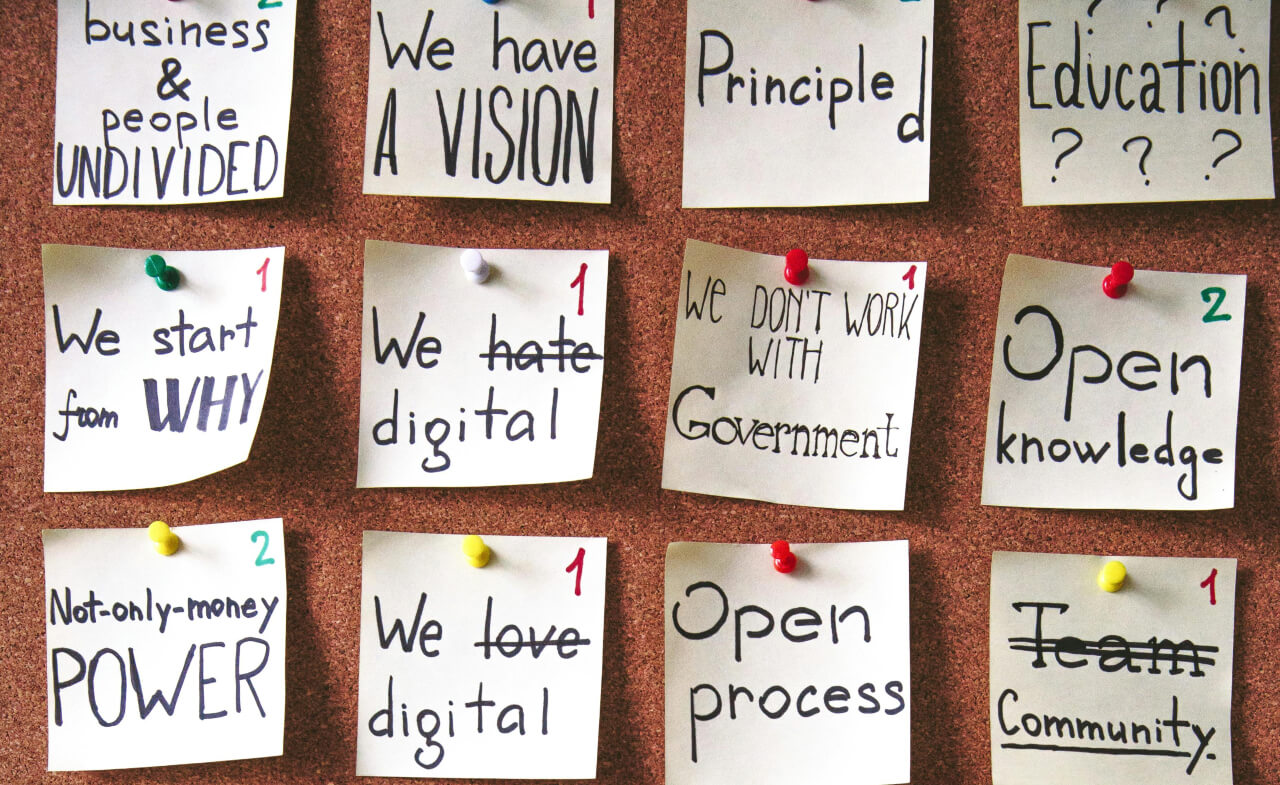 2
business
&
people
UNDIVIDED
1
We have
A VISION
Principled
d
? ? ?
Education
? ? ?
1
We start
from WHY
1
We hate
digital
1
WE DON'T WORK
WITH
Government
2
Open
knowledge
2
Not-only-money
POWER
1
We love
digital
Open
process
1
Team
Community.